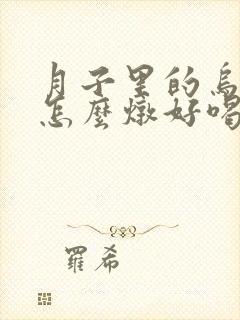 月子里的烏
怎麼燉好喝
羅希